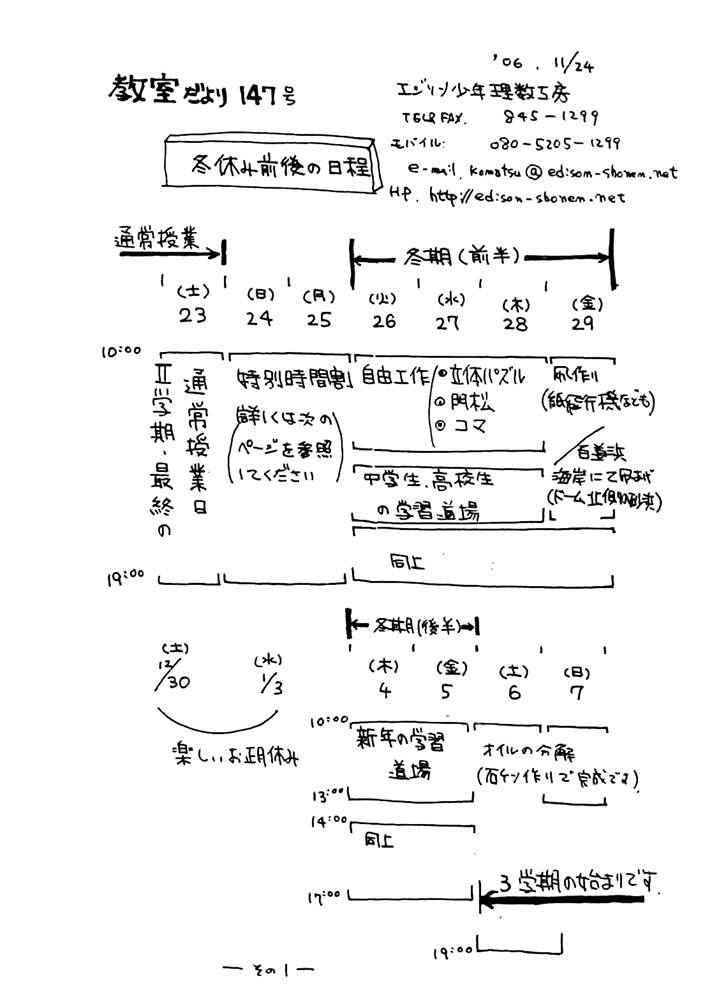 '06. 11/24
教室だより 147号
エジソン少年理数工房
TEL&FAX. 845-1299
モバイル: 080-5205-1299
e-mail. komatsu@edison-shonen.net
HP. http://edison-shonen.net
冬休み前後の日程
通常授業
冬期(前半)
(土) (日) (月) (火) (水) (木) (金)
23 24 25 26 27 28 29
10:00
通常授業日
Ⅱ学期・最終の
特別時間割
(詳しくは次の
ページを参照
してください)
自由工作
◉立体パズル
◉門松
◉コマ
凧作り
(紙飛行機なども)
百道浜
海岸にて凧あげ
(ドーム北側の砂浜)
中学生、高校生
の学習道場
同上
19:00
冬期(後半)
(土) (水)
12/30 1/3
楽しいお正月休み
(木) (金) (土) (日)
4 5 6 7
10:00
新年の学習
道場
オイルの分解
(石ケン作りで完成です)
13:00
14:00
同上
17:00
3学期の始まりです.
19:00
— その1 —